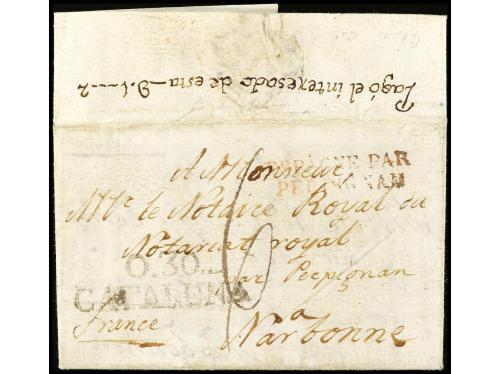 Pagó el interesado de esta 9.1....2
A Monsieur
ESPAGNE PAR
PERPIGNAN
Mr. le Notaire Royal ou
Notariat royal
par Perpignan
O.30.
CATALUÑA
france
Narbonne